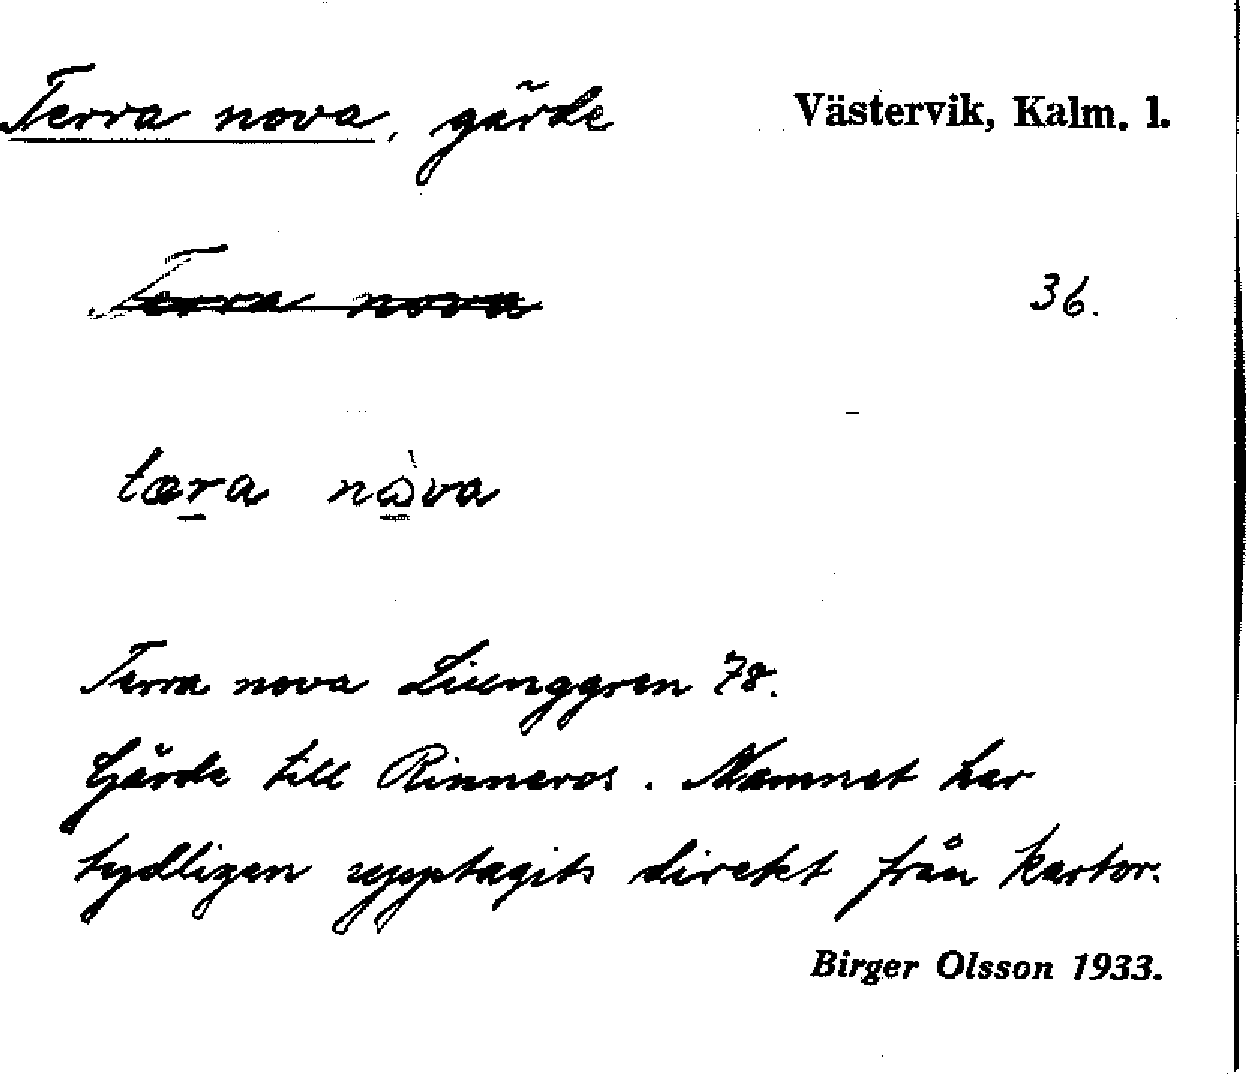 Terra nova, gärde Västervik, Kalm. l.
Terra nova 36.
tæra nωva
Terra nova Liunggren 78.
Gärde till Rinneros. Namnet har
tydligen upptagits direkt från kartor.
Birger Olsson 1933.